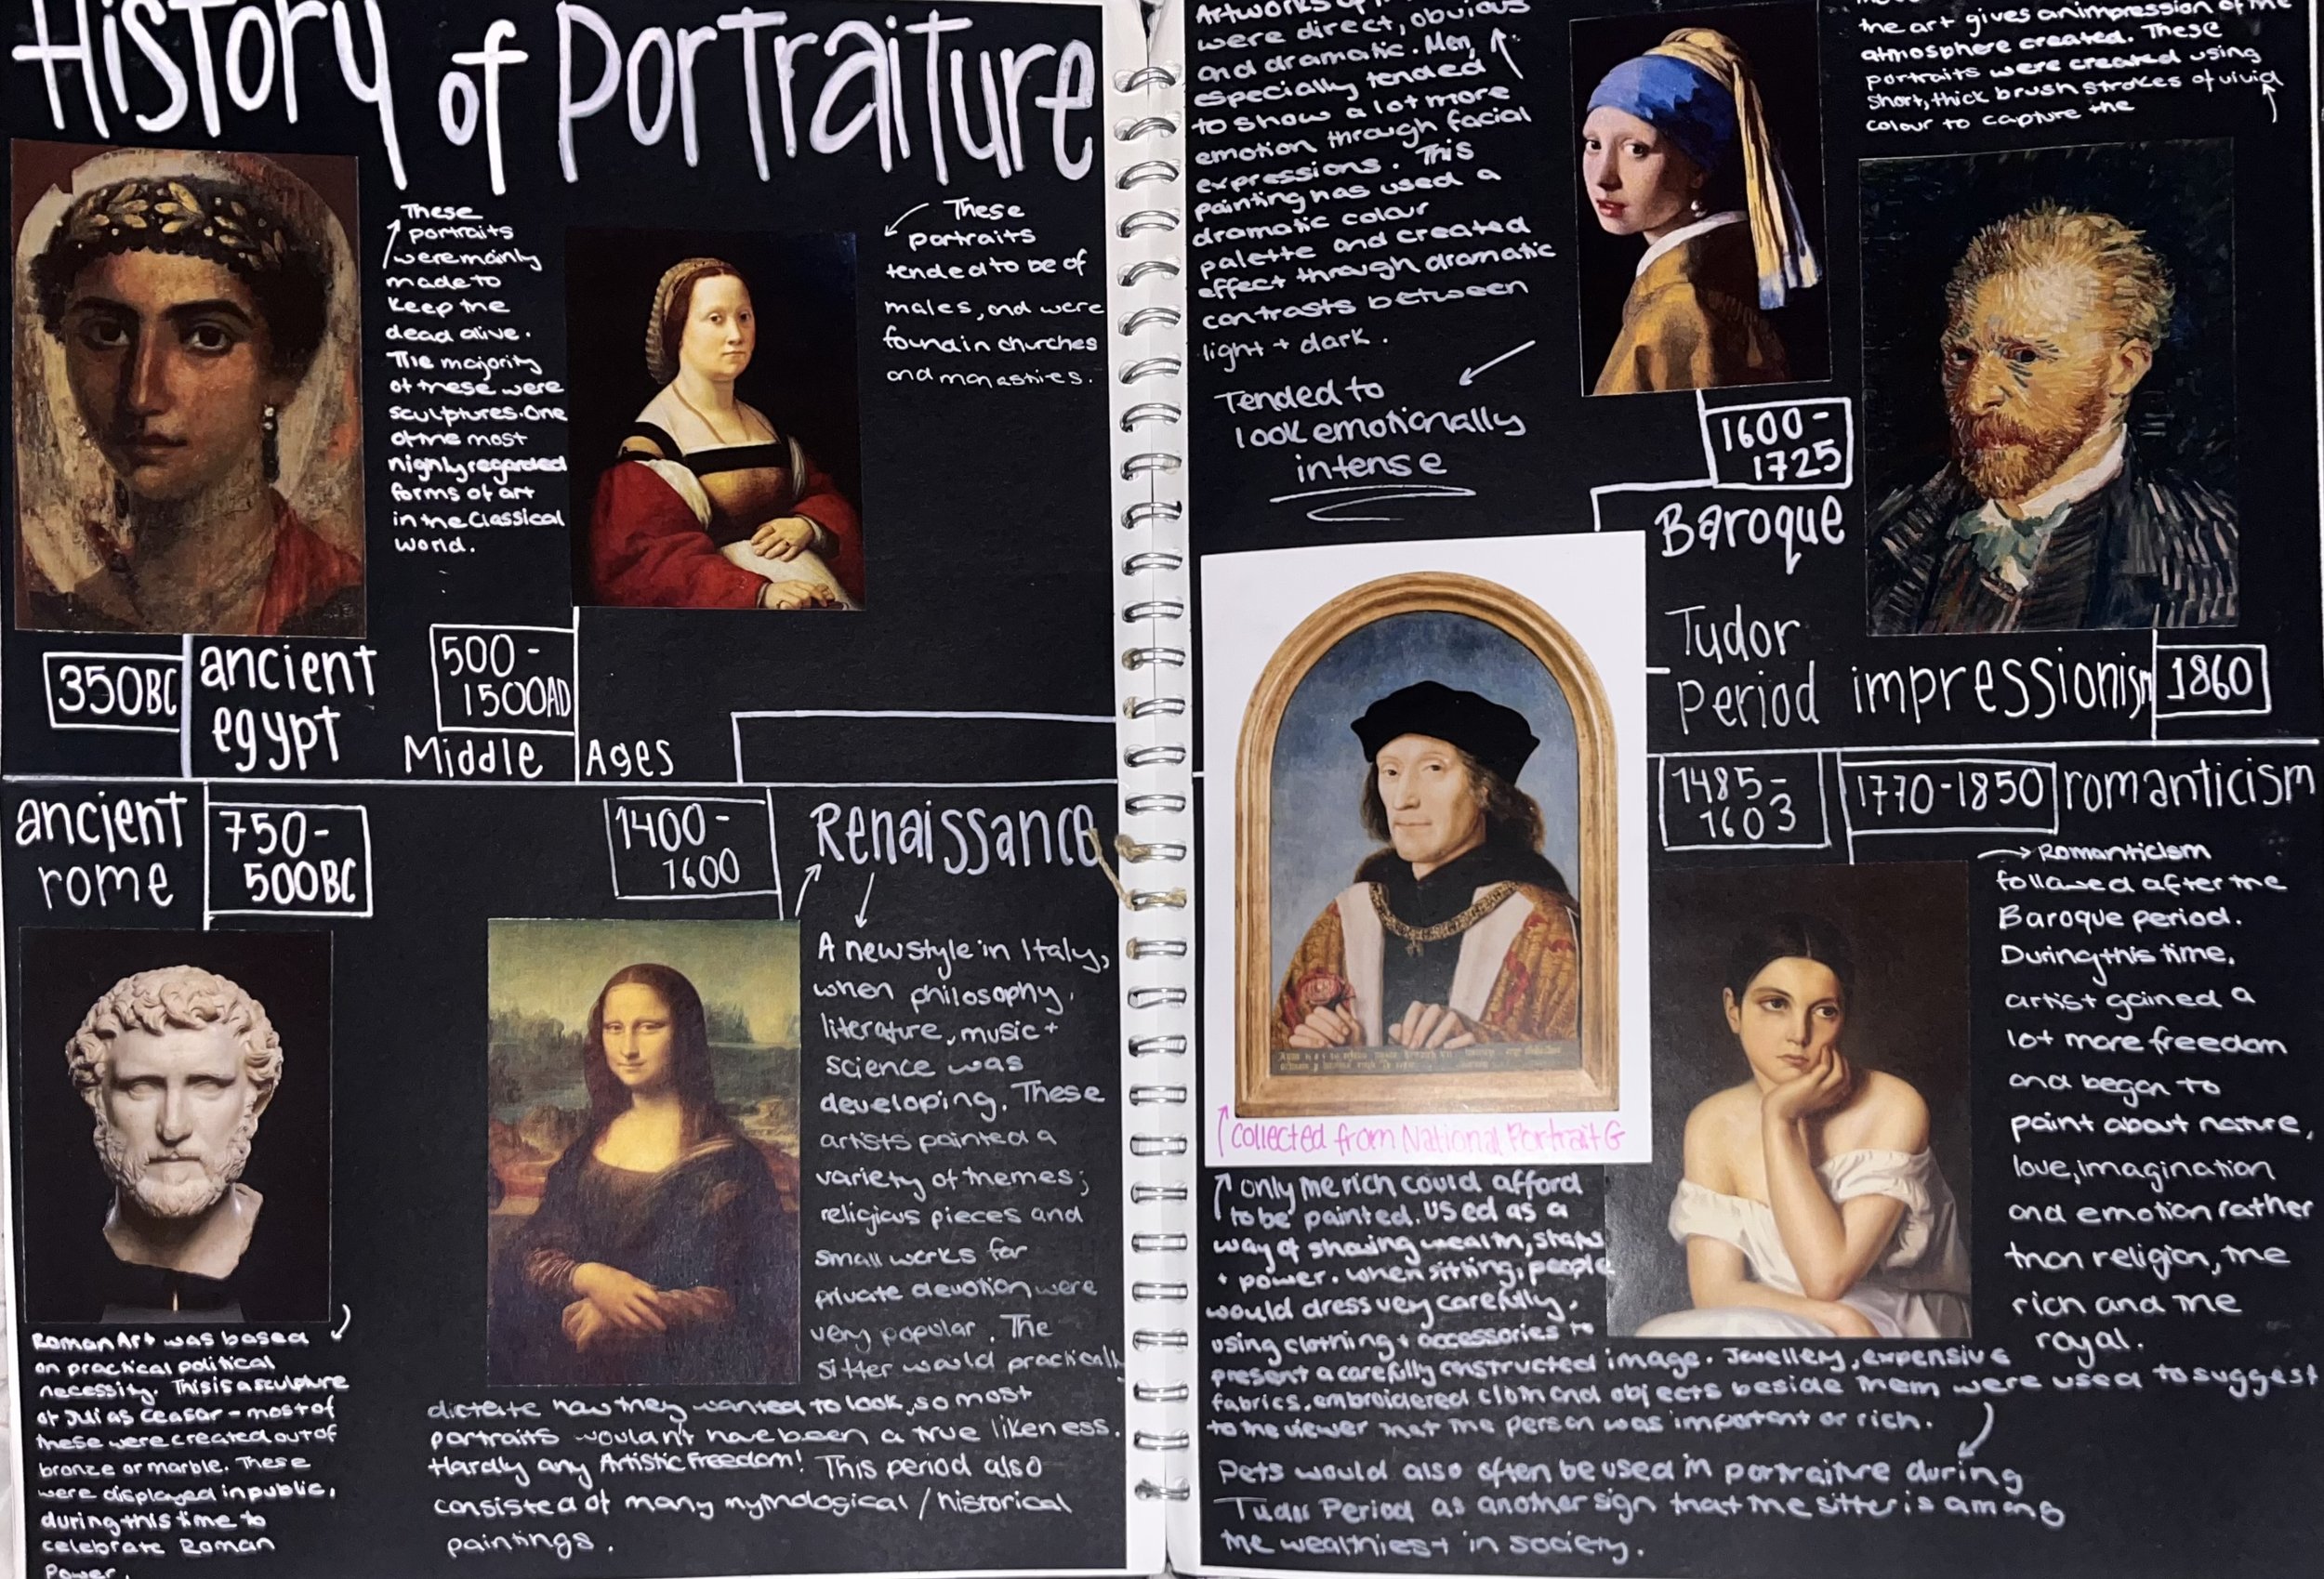 History of Portraiture
These
portraits
were mainly
made to
keep the
dead alive.
The majority
of these were
sculptures. One
of the most
highly regarded
forms of art
in the Classical
world.
These
portraits
tended to be of
males, and were
found in churches
and monastries.
350BC
ancient
egypt
500-
1500AD
Middle Ages
ancient
rome
750-
500BC
1400-
1600
Renaissance
Roman Art was based
on practical political
necessity. This is a sculpture
of Julias Ceasar - most of
these were created out of
bronze or marble. These
were displayed in public,
during this time to
celebrate Roman
Power.
A new style in Italy,
when philosophy,
literature, music +
science was
developing. These
artists painted a
variety of themes;
religious pieces and
small works for
private devotion were
very popular. The
sitter would practically
dictate how they wanted to look, so most
portraits wouldn't have been a true likeness.
Hardly any Artistic Freedom! This period also
consisted of many mythological / historical
paintings.
Artworks of
were direct, obvious
and dramatic. Men,
especially tended
to show a lot more
emotion through facial
expressions. This
painting has used a
dramatic colour
palette and created
effect through dramatic
contrasts between
light + dark.
Tended to
look emotionally
intense
1600-
1725
Baroque
the art gives an impression of the
atmosphere created. These
portraits were created using
short, thick brush strokes of vivid
colour to capture the
Tudor
Period
1485-
1603
impressionism
1860
1770-1850
romanticism
collected from National Portrait G
only the rich could afford
to be painted. Used as a
way of showing wealth, status
+ power. When sitting, people
would dress very carefully,
using clothing + accessories to
present a carefully constructed image. Jewellery, expensive
fabrics, embroidered cloth and objects beside them were used to suggest
to the viewer that the person was important or rich.
Pets would also often be used in portraiture during
Tudor Period as another sign that the sitter is among
the wealthiest in society.
Romanticism
followed after the
Baroque period.
During this time,
artist gained a
lot more freedom
and began to
paint about nature,
love, imagination
and emotion rather
than religion, the
rich and the
royal.